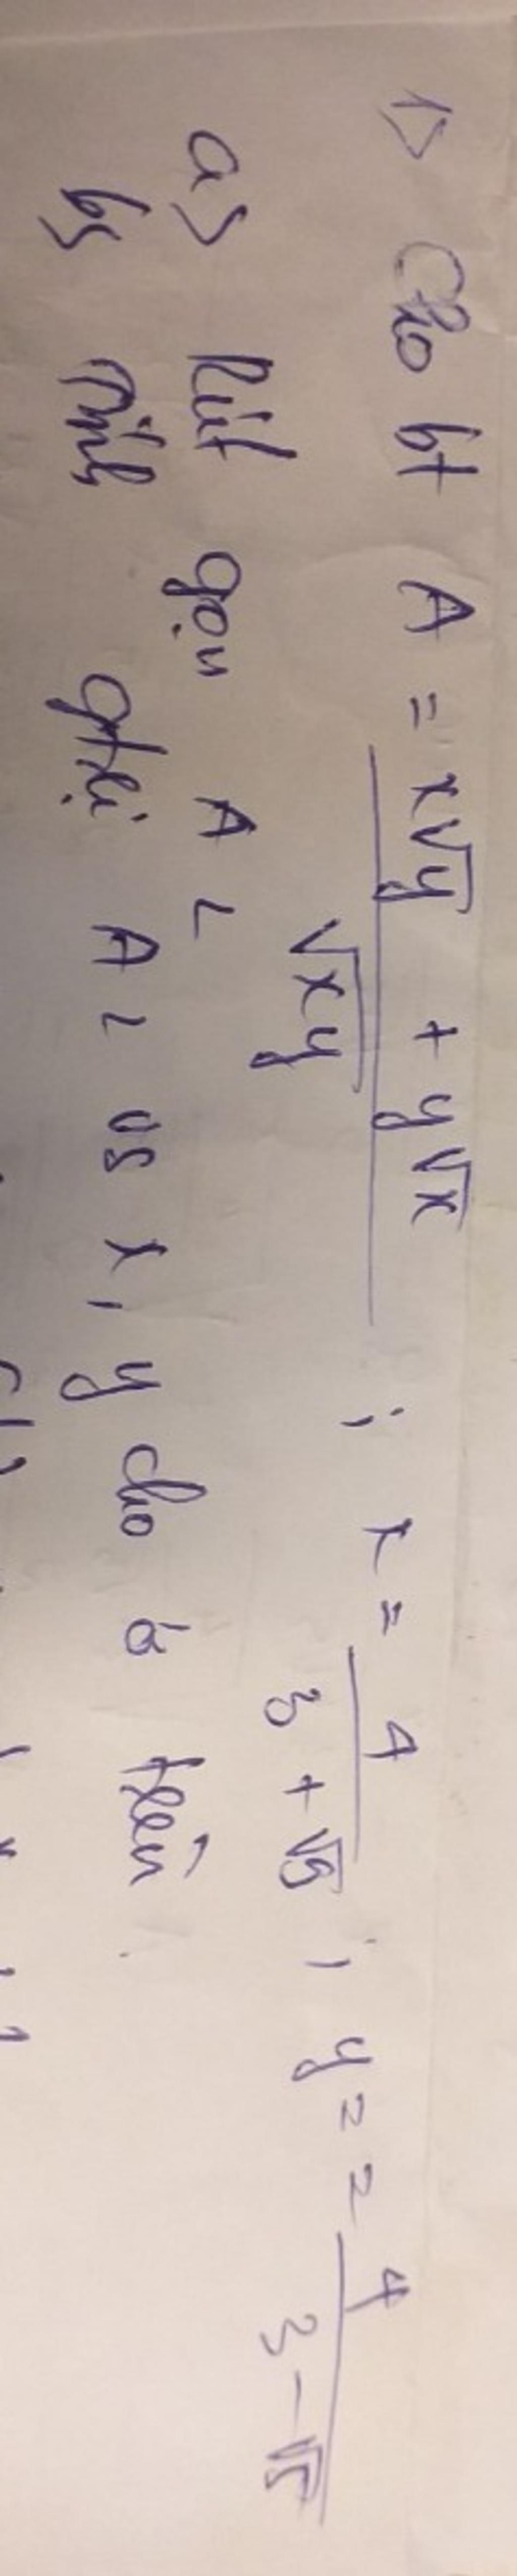 1> Cho bt A = x√y + y√x / √xy ; x = 4 / 3 + √5 ; y = = 4 / 3 - √5
a> Rút gọn A =
b> Tính gtrị A = vs x, y cho ở trên